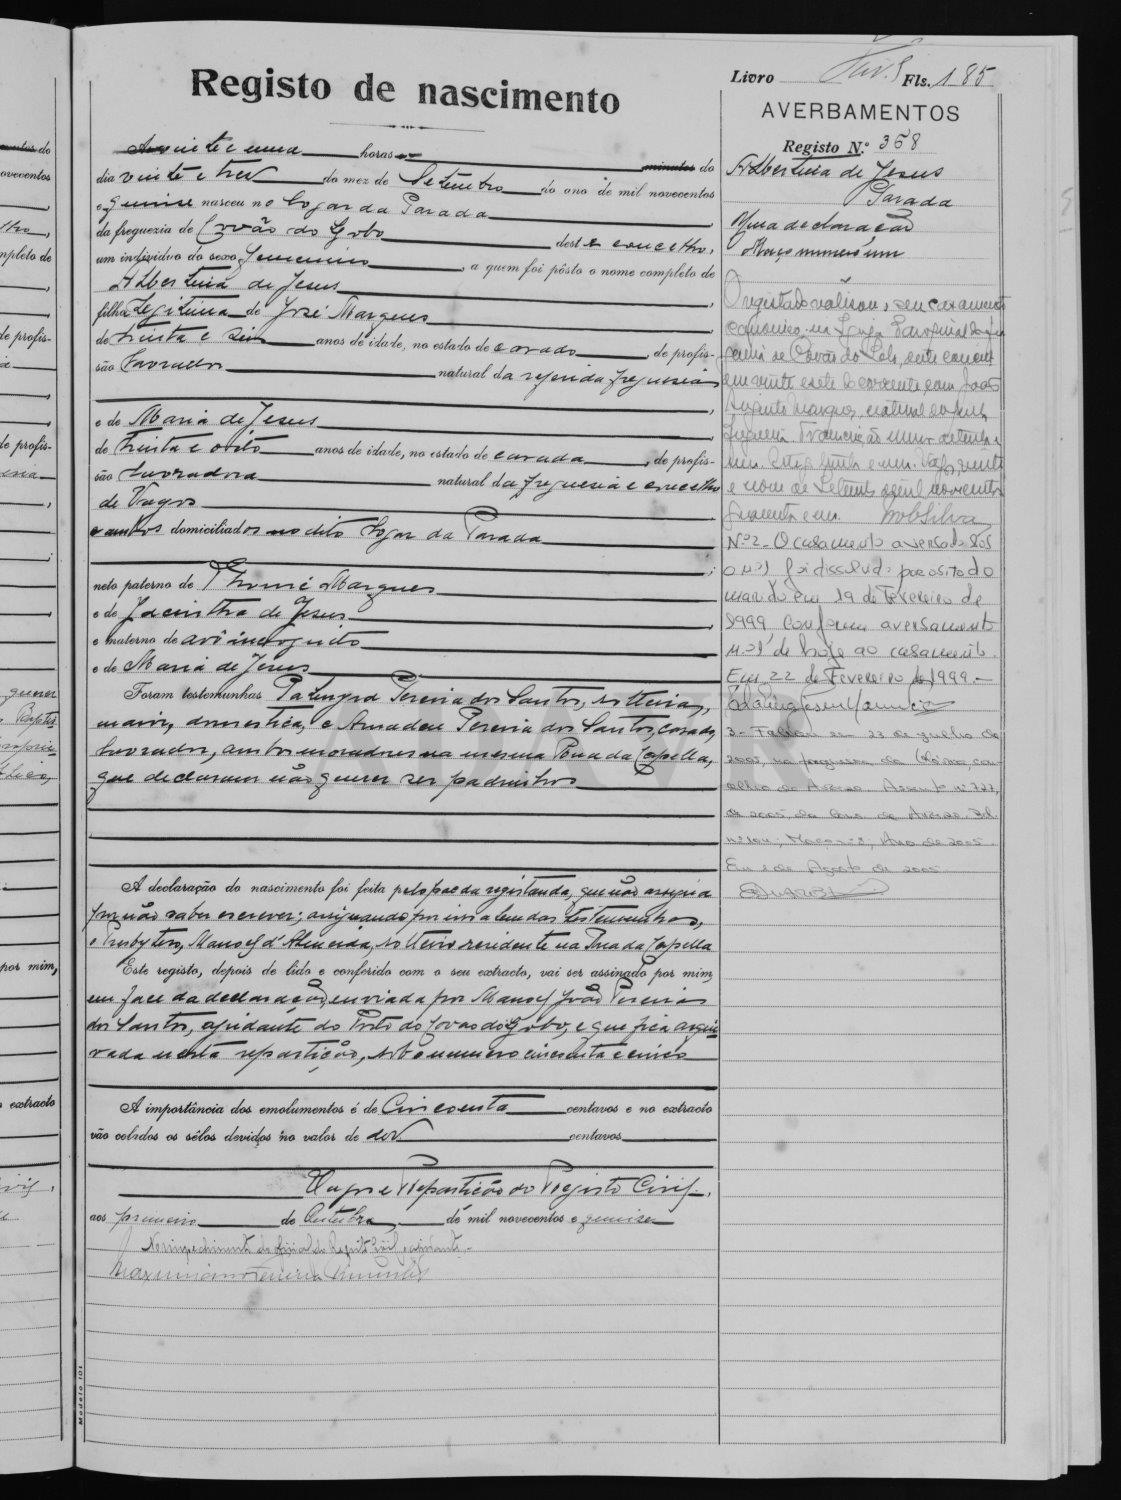 Registo de nascimento
Livro Fls. 185
AVERBAMENTOS
Registo N.º 358
Albertina de Jesus
Parada
Uma declaração
Março numero um
As vinte e uma horas minutos do
dia vinte e tres do mez de Setembro do ano de mil novecentos
e quinse nasceu no Logar da Parada
da freguezia de Covão do Lobo deste concelho,
um individuo do sexo femenino, a quem foi pôsto o nome completo de
Albertina de Jesus
filha legitima de José Marques
de trinta e seis anos de idade, no estado de casado, de profis-
são lavrador natural da referida freguesia
e de Maria de Jesus
de trinta e oito anos de idade, no estado de casada, de profis-
são lavradora natural da freguesia e concelho
de Vagos
e ambos domiciliados no dito Logar da Parada
neto paterno de Thomé Marques
e de Jacintha de Jesus
e materno de avô incognito
e de Maria de Jesus
Foram testemunhas Palmyra Pereira dos Santos, solteira,
maior, domestica, e Amadeu Pereira dos Santos, casado,
lavrador, ambos moradores na mesma Rua da Capella,
que declararam não querer ser padrinhos
A declaração do nascimento foi feita pelo pae da registanda, que não assigna
por não saber escrever; assignando por isso alem das testemunhas,
o Presbytero, Manoel d'Almeida, solteiro residente na Rua da Capella
Este registo, depois de lido e conferido com o seu extracto, vai ser assinado por mim,
em face da declaração enviada por Manoel João Pereira
dos Santos, ajudante do Posto do Covão do Lobo, e que fica arqui-
vada nesta repartição, sob o numero cincoenta e cinco
A importância dos emolumentos é de Cincoenta centavos e no extracto
vão colados os sêlos devidos no valor de dez centavos
Vagos e Repartição do Registo Civil,
aos primeiro de Outubro de mil novecentos e quinse
No impedimento do Oficial do Registo Civil, o ajudante
O registado realisou o seu casamento
canonico na Igreja Paroquial da fre
guesia de Covão do Lobo, deste concelho,
em vinte e sete do corrente, com João
natural da mesma
freguesia.
e nove de Setembro de mil novecentos
quarenta e um.
Nº 2 - O casamento averbado sob
o nº 1 foi dissolvido por obito do
marido em 19 de Fevereiro de
1999 conforme averbamento
nº 1 de hoje ao casamento.
Em 22 de Fevereiro de 1999 -
3 - Faleceu em 23 de Julho de
2005, na freguesia da Glória, con-
celho de Aveiro. Assento nº 727,
de 2005 da Cons. de Aveiro.
Ano de 2005.
Em 1 de Agosto de 2005
Modelo 101